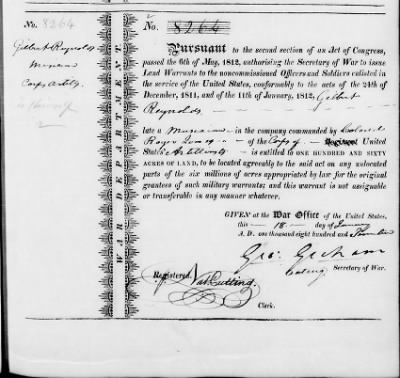 No. 8264
Gilbert Reynolds
Musician
Corps Artily.
WAR DEPARTMENT
No. 8264
Pursuant to the second section of an Act of Congress,
passed the 6th of May, 1812, authorising the Secretary of War to issue
Land Warrants to the noncommissioned Officers and Soldiers enlisted in
the service of the United States, conformably to the acts of the 24th of
December, 1811, and of the 11th of January, 1812, Gilbert
Reynolds
late a Musician in the company commanded by Colonel
Roger Jones of the Corps of Regiment United
States Artillery
is entitled to ONE HUNDRED AND SIXTY
ACRES OF LAND, to be located agreeably to the said act on any unlocated
parts of the six millions of acres appropriated by law for the original
grantees of such military warrants; and this warrant is not assignable
or transferable in any manner whatever.
GIVEN at the War Office of the United States,
this 18 day of January
A. D. one thousand eight hundred and
Geo: Graham
Secretary of War.
Registered,
Nat Cutting
Clerk.